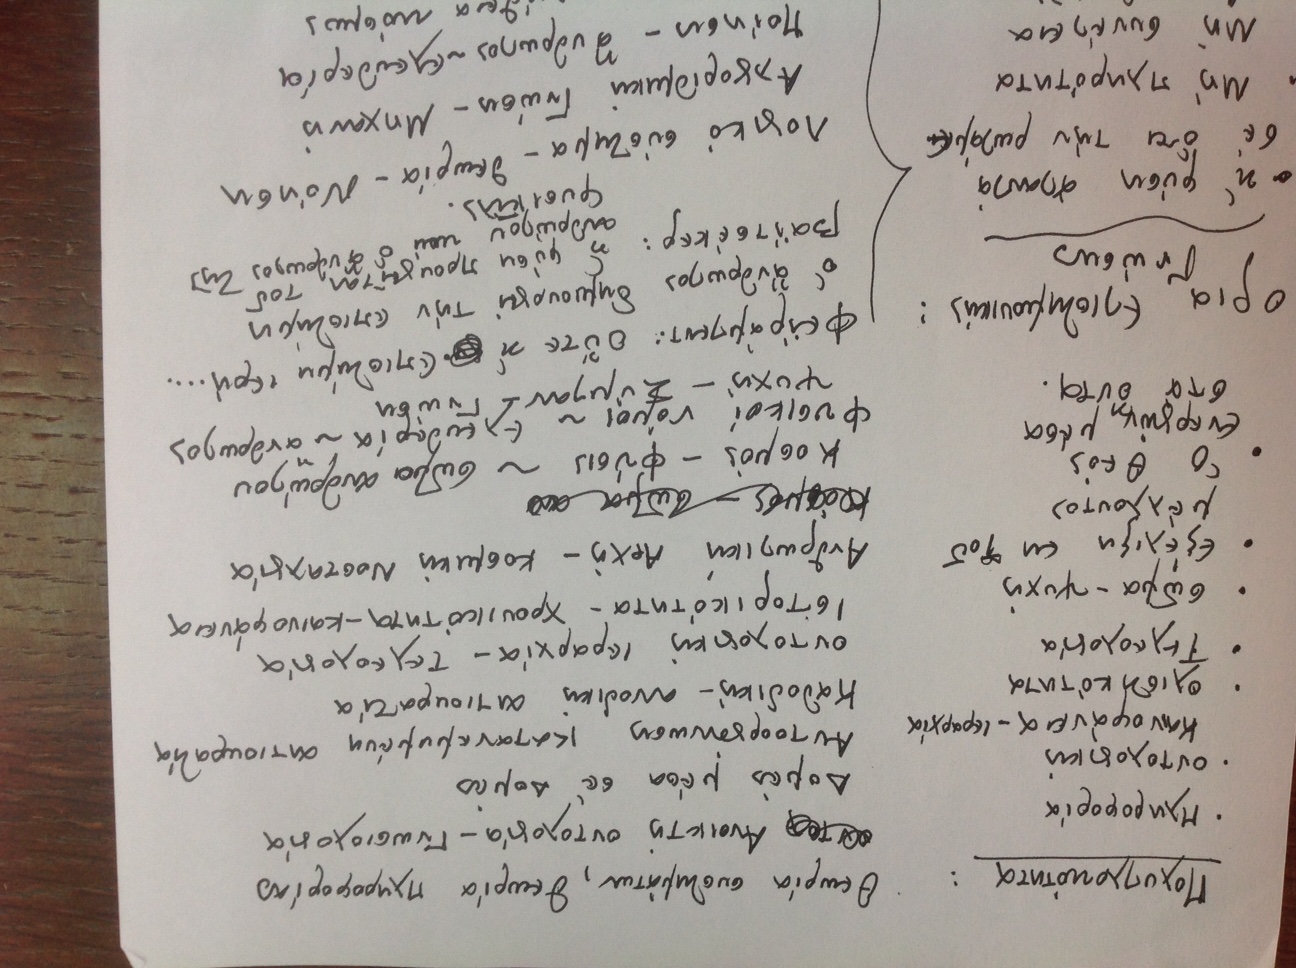 Πολυπλοκότητα :
Θεωρία συστημάτων, θεωρία πληροφορίας
Ανοικτή οντολογία - Γνωσιολογία
Δομές μέσα σέ δομές
Αυτοοργάνωση κατανεμημένη αντιουραλία
Καθοδική - ανοδική αιτιοκρατία
οντολογική ιεραρχία - Τελεολογία
ιστορικότητα - χρονικότητα - καινοφάνεια
Ανθρωπική Αρχή - κοσμική Νοσταλγία
Κοσμος - φύσις ~ σώμα ανθρώπου
Φυσικοί νόμοι ~ ελευθερία ~ ανθρωπος
ψυχή - Σύμπαν - Γνώση
Φεϋράμπεντ: Οὔτε ἡ ἐπιστήμη
ὁ ἄνθρωπος δημιουργεί τήν ἐπιστήμη
Βάιτσέκερ: ἡ φύση τοῦ
ανθρώπου ὁ ἄνθρωπος τῆς
φυσικῆς.
Λογικό σύστημα - θεωρία - Νόηση
Αλγοριθμική Γνώση - Μηχανή
Ποίηση - ἄνθρωπος ~ ελευθερία
• Πληροφορία
• οντολογική
Καινοφάνεια - ιεραρχία
• ολιστικότητα
• Τελεολογία
• σώμα - ψυχή
• Εξέλιξη
μέλλοντος
• Ὁ Θεός
ἐνεργῶν μέσα
στα οντα.
Ορια Επιστημονικής :
Γνώσης
• ἡ φύση απαντά
σέ ὅτι τήν ρωτάμε
• Μή πληρότητα
Μή συνέχεια